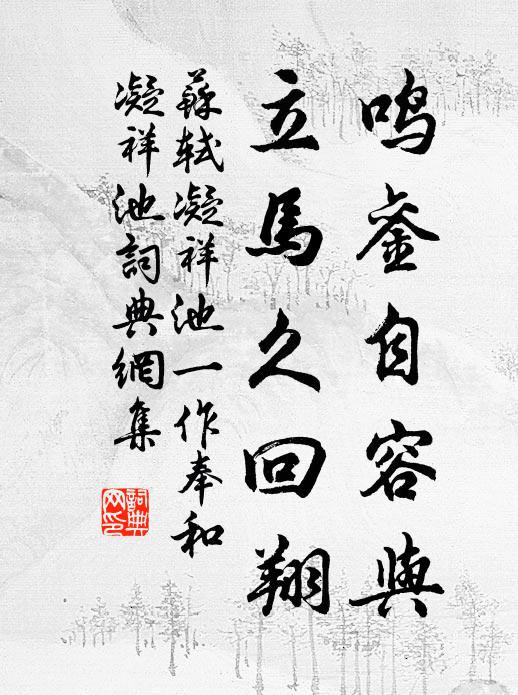 鸣銮自容與
立馬久回翔
蘇軾凝祥池一作奉和
凝祥池詞典網集
詞典网印